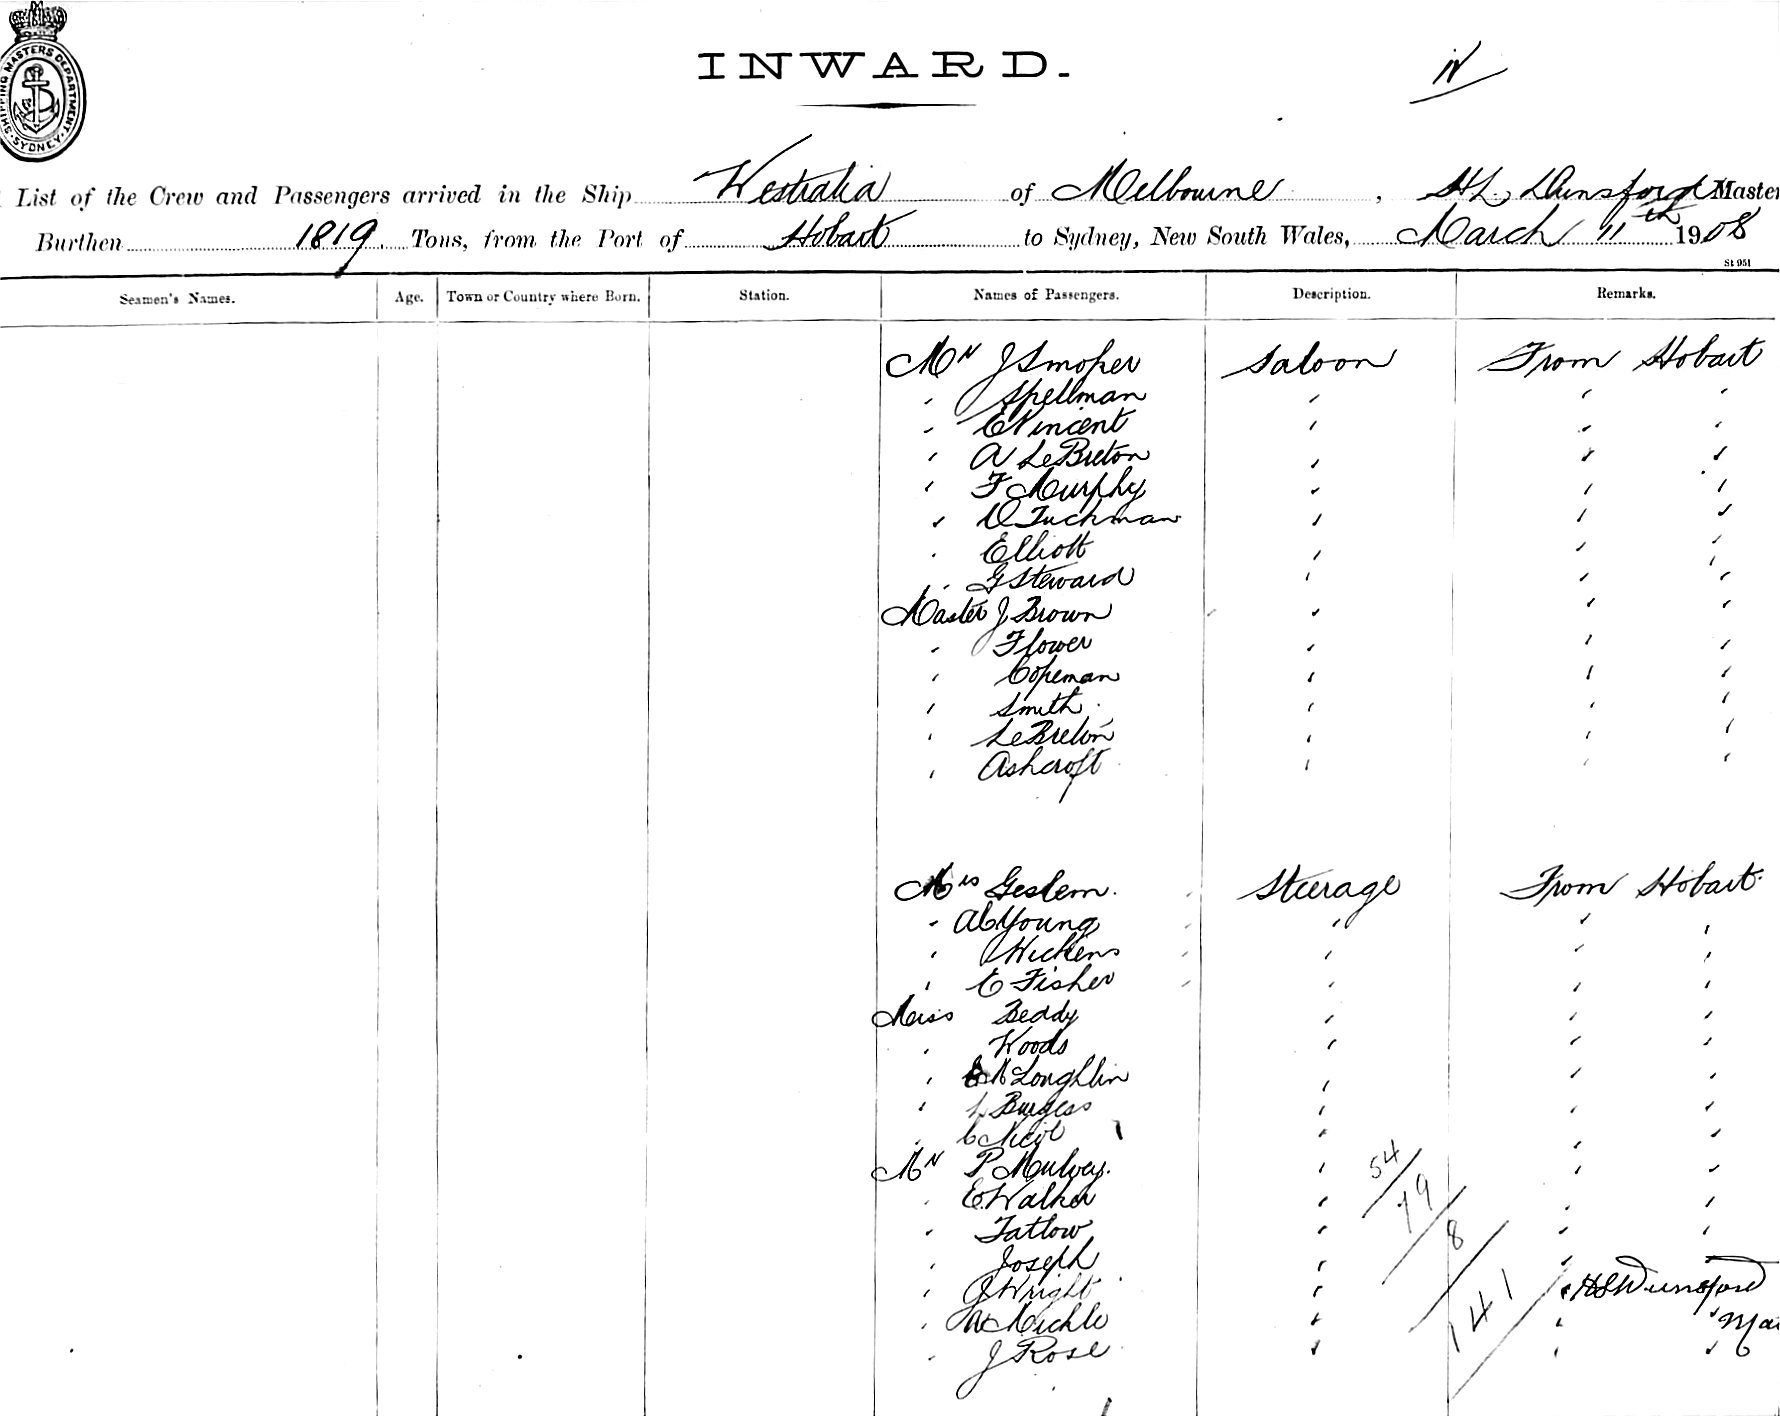 SHIPPING MASTERS DEPARTMENT · SYDNEY ·
INWARD.
List of the Crew and Passengers arrived in the Ship Westralia of Melbourne, H L Dunsford Master
Burthen 1819 Tons, from the Port of Hobart to Sydney, New South Wales, March 11th 1908
St 951
Seamen's Names. Age. Town or Country where Born. Station. Names of Passengers. Description. Remarks.
Mr J Smoper Saloon From Hobart
" Spellman " " "
" E Vincent " " "
" A LeBreton " " "
" F Murphy " " "
" D Tuckman " " "
" Elliott " " "
" G Steward " " "
Master J Brown " " "
" Flower " " "
" Copeman " " "
" Smith " " "
" LeBreton " " "
" Ashcroft " " "
Mrs Geslem. Steerage From Hobart.
" A C Young " " "
" Wickens " " "
" C Fisher " " "
Miss Beddy " " "
" Woods " " "
" McLoughlin " " "
" L Burgess " " "
" C Nicol " " "
Mr P Mulvey. " " " 54
" E Walker " " " 79
" Tatlow " " " 8
" Joseph " " "
" J Wright " 141 " HL Dunsford
" A Mickle " " " Ma
" J Rose " " "